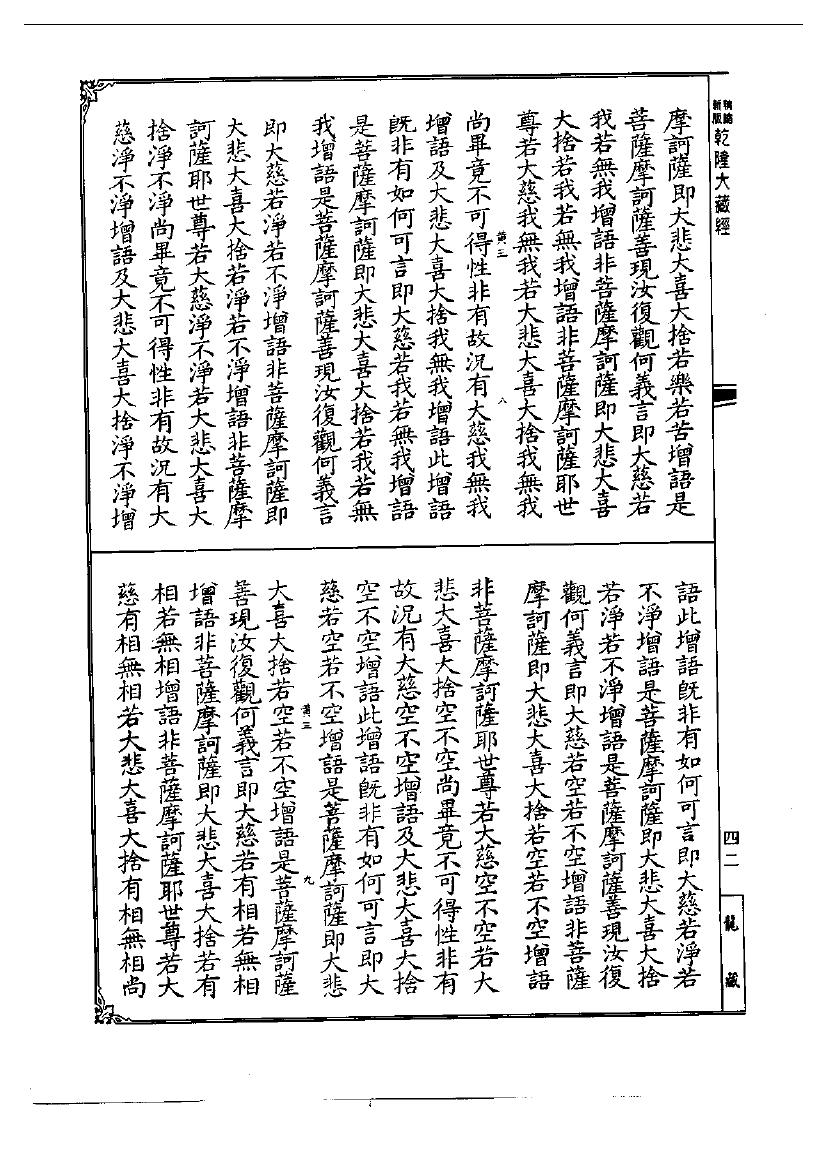 乾隆大藏經
摩訶薩即大悲大喜大捨若樂若苦增語是
菩薩摩訶薩善現汝復觀何義言即大慈若
我若無我增語非菩薩摩訶薩即大悲大喜
大捨若我若無我增語非菩薩摩訶薩耶世
尊若大慈我無我若大悲大喜大捨我無我
黃三
八
尚畢竟不可得性非有故況有大慈我無我
增語及大悲大喜大捨我無我增語此增語
旣非有如何可言即大慈若我若無我增語
是菩薩摩訶薩即大悲大喜大捨若我若無
我增語是菩薩摩訶薩善現汝復觀何義言
即大慈若淨若不淨增語非菩薩摩訶薩即
大悲大喜大捨若淨若不淨增語非菩薩摩
訶薩耶世尊若大慈淨不淨若大悲大喜大
捨淨不淨尚畢竟不可得性非有故況有大
慈淨不淨增語及大悲大喜大捨淨不淨增
語此增語旣非有如何可言即大慈若淨若
不淨增語是菩薩摩訶薩即大悲大喜大捨
若淨若不淨增語是菩薩摩訶薩善現汝復
觀何義言即大慈若空若不空增語非菩薩
摩訶薩即大悲大喜大捨若空若不空增語
非菩薩摩訶薩耶世尊若大慈空不空若大
悲大喜大捨空不空尚畢竟不可得性非有
故況有大慈空不空增語及大悲大喜大捨
空不空增語此增語旣非有如何可言即大
慈若空若不空增語是菩薩摩訶薩即大悲
黃三
九
大喜大捨若空若不空增語是菩薩摩訶薩
善現汝復觀何義言即大慈若有相若無相
增語非菩薩摩訶薩即大悲大喜大捨若有
相若無相增語非菩薩摩訶薩耶世尊若大
慈有相無相若大悲大喜大捨有相無相尚
四二
龍藏